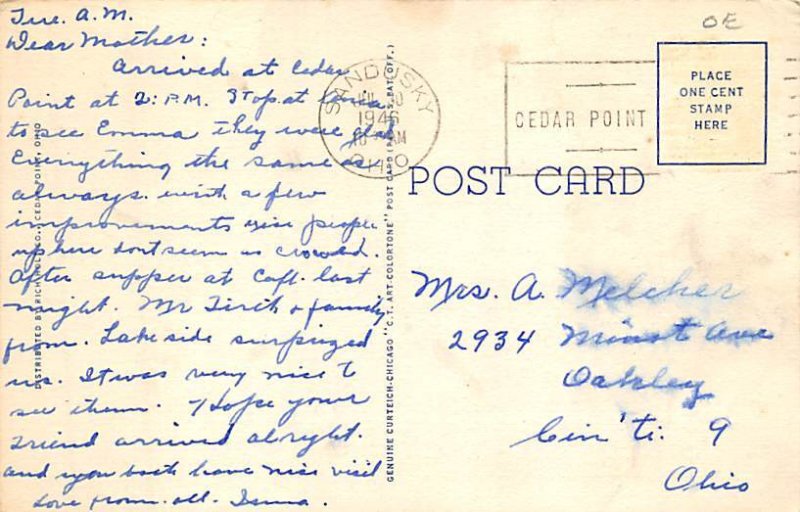 Tue. A.M.
Dear Mother:
Arrived at Cedar
Point at 2: P.M. Stop. at
to see Emma they were glad
Everything the same as
always. with a few
improvements nice people
up here dont seem as crowded.
After supper at Caft. last
night. Mr & family
from. Lakeside surprized
us. It was very nice to
see them. I Hope your
Friend arrived alright.
and you both have nice visit
Love from. all.
DISTRIBUTED BY CEDAR POINT, OHIO
GENUINE CURTEICH-CHICAGO "C.T. ART-COLORTONE" POST CARD (REG. U.S. PAT. OFF.)
SANDUSKY
1946
AM
OHIO
CEDAR POINT
OE
PLACE
ONE CENT
STAMP
HERE
POST CARD
Mrs. A. Melcher
2934 Minot Ave
Oakley
Cin'ti. 9
Ohio